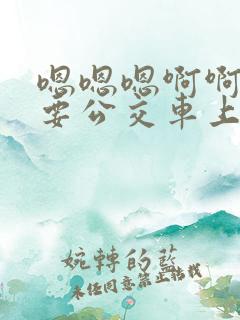 嗯嗯嗯啊啊
要公交車上
婉轉的藍
未經同意禁止轉載